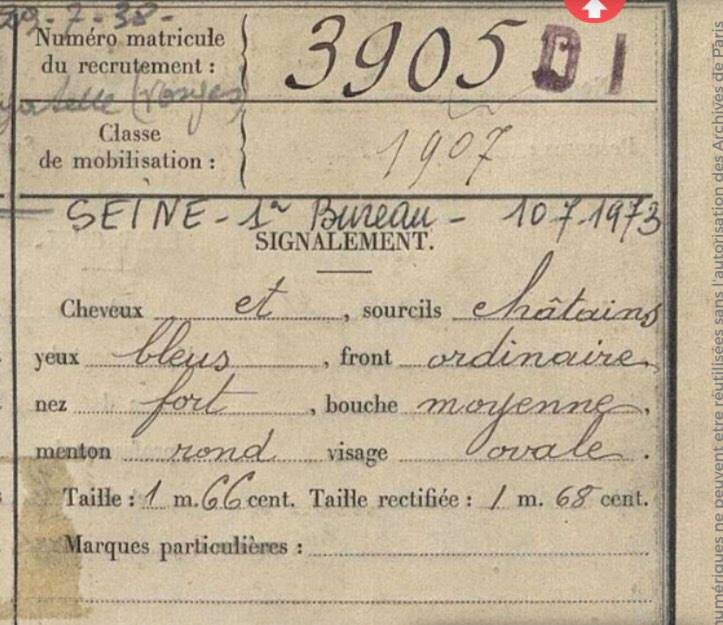 29-7-38-
Numéro matricule
du recrutement : 3905 D 1
(Vosges)
Classe
de mobilisation : 1907
SEINE - 1er Bureau - 10.7.1973
SIGNALEMENT.
Cheveux et, sourcils châtains
yeux bleus, front ordinaire,
nez fort, bouche moyenne,
menton rond visage ovale.
Taille : 1 m. 66 cent. Taille rectifiée : 1 m. 68 cent.
Marques particulières :
numériques ne peuvent etre réutilisées sans l'autorisation des Archives de Paris